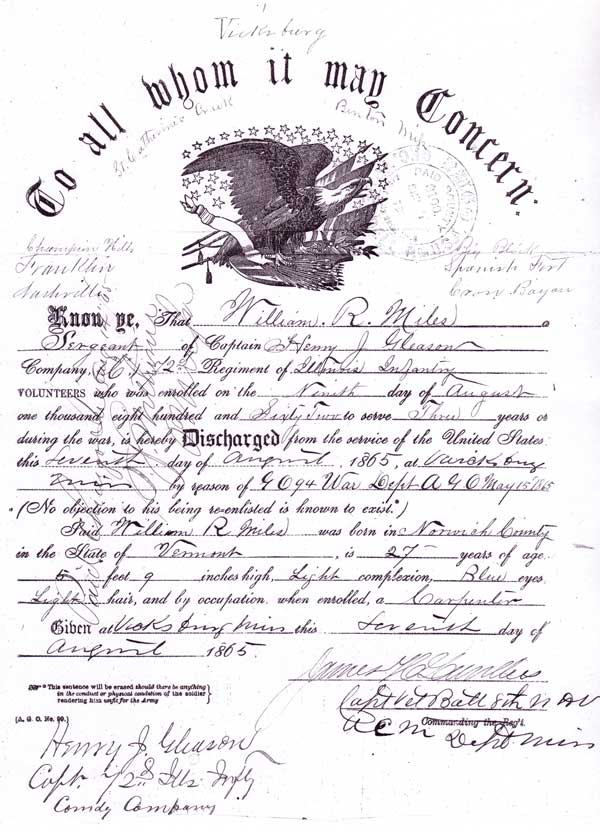 Vicksburg
To all whom it may Concern:
Benton Miss
PAID
Champion Hills
Franklin
Nashville
Big Black
Spanish Fort
Know ye, That William. R. Miles
Sergeant of Captain Henry J Gleason
Company, (C,) 72d Regiment of Illinois Infantry
VOLUNTEERS who was enrolled on the Ninth day of August
one thousand eight hundred and Sixty Two to serve Three years or
during the war, is hereby Discharged from the service of the United States
this Seventh day of August, 1865, at
Miss by reason of G O 94 War Dept A G O May 15 1865
(No objection to his being re-enlisted is known to exist.*)
Said William R Miles was born in Norwich County
in the State of Vermont, is 27 years of age,
5 feet 9 inches high, Light complexion, Blue eyes,
Light hair, and by occupation, when enrolled, a Carpenter
Given at Vicksburg Miss this Seventh day of
August 1865.
* This sentence will be erased should there be anything
in the conduct or physical condition of the soldier
rendering him unfit for the Army
[A. G. O. No. 99.]
Capt Vet Batt 8th
Commanding the Reg't.
A C M Dept Miss
Henry J. Gleason
Capt. 72d Ills Infty
Comdg Company